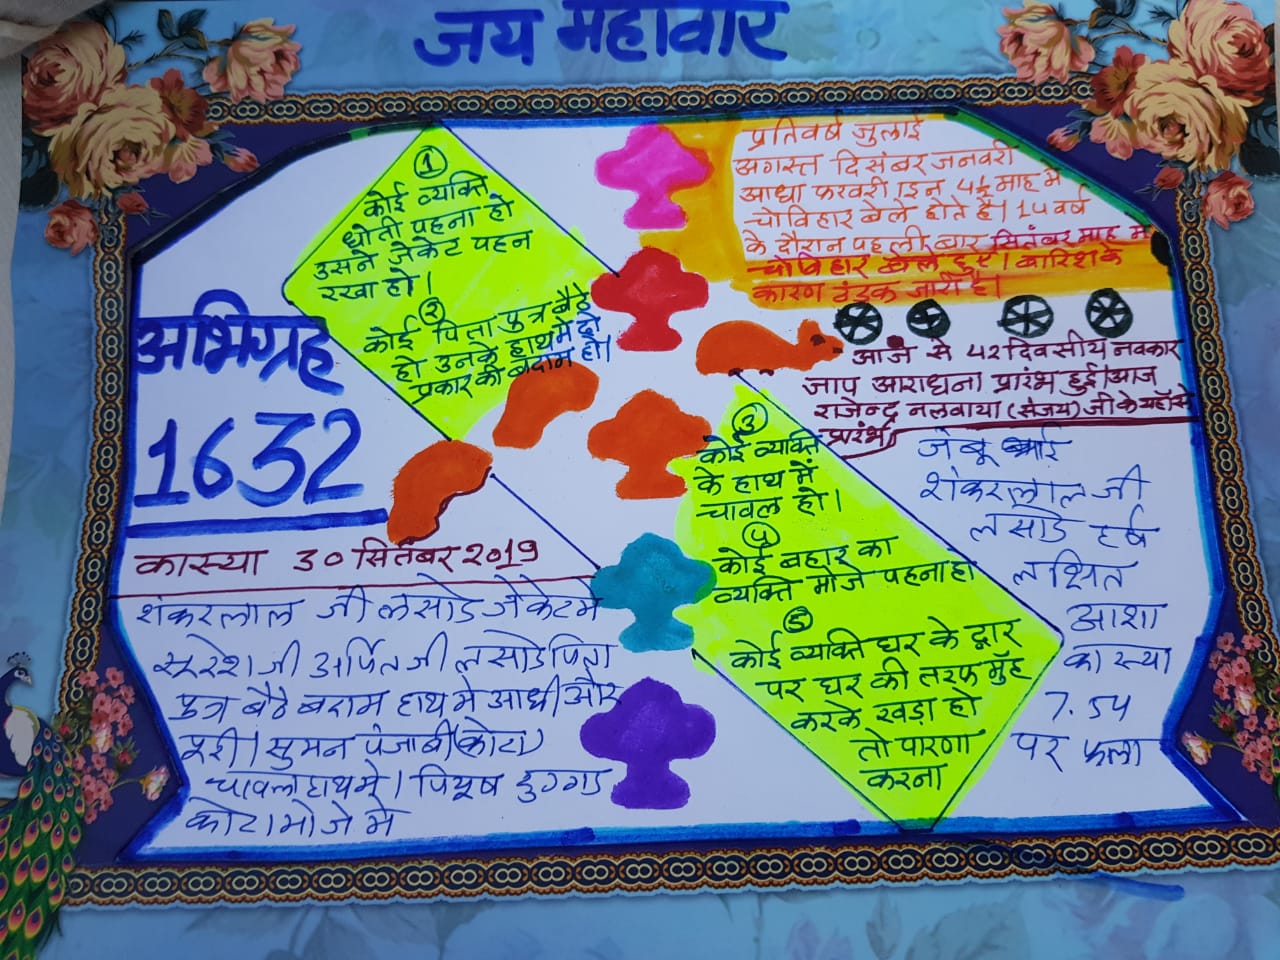 जय महावीर
①
कोई व्यक्ति
धोती पहना हो
उसने जेकेट पहन
रखा हो।
②
कोई पिता पुत्र बैठे
हो उनके हाथ में दो
प्रकार की बदाम हो।
प्रतिवर्ष जुलाई
अगस्त दिसंबर जनवरी
आधा फरवरी। इन 4½ माह में
चोविहार बेले होते है। 14 वर्ष
के दौरान पहली बार सितंबर माह में
चोविहार बेले हुए। बारिश के
कारण ठंडक जारी है।
आज से 42 दिवसीय नवकार
जाप आराधना प्रारंभ हुई। आज
राजेन्द्र नलवाया (संजय) जी के यहाँ से
प्रारंभ
अभिग्रह
1632
कास्या 30 सितंबर 2019
शंकरलाल जी लसोड जेकेट मे
सुरेश जी अर्पित जी लसोड पिता
पुत्र बैठे बदाम हाथ मे आधी और
पुरी। सुमन पंजाबी (कोटा)
चावल हाथ मे। पियूष डुग्गड
कोटा मोजे मे
③
कोई व्यक्ति
के हाथ में
चावल हो।
④
कोई बहार का
व्यक्ति मोजे पहना हो
⑤
कोई व्यक्ति घर के द्वार
पर घर की तरफ मुँह
करके खड़ा हो
तो पारणा
करना
शंकरलाल जी
लसोड हर्ष
लक्षित
आशा
कास्या
7.54
पर फला